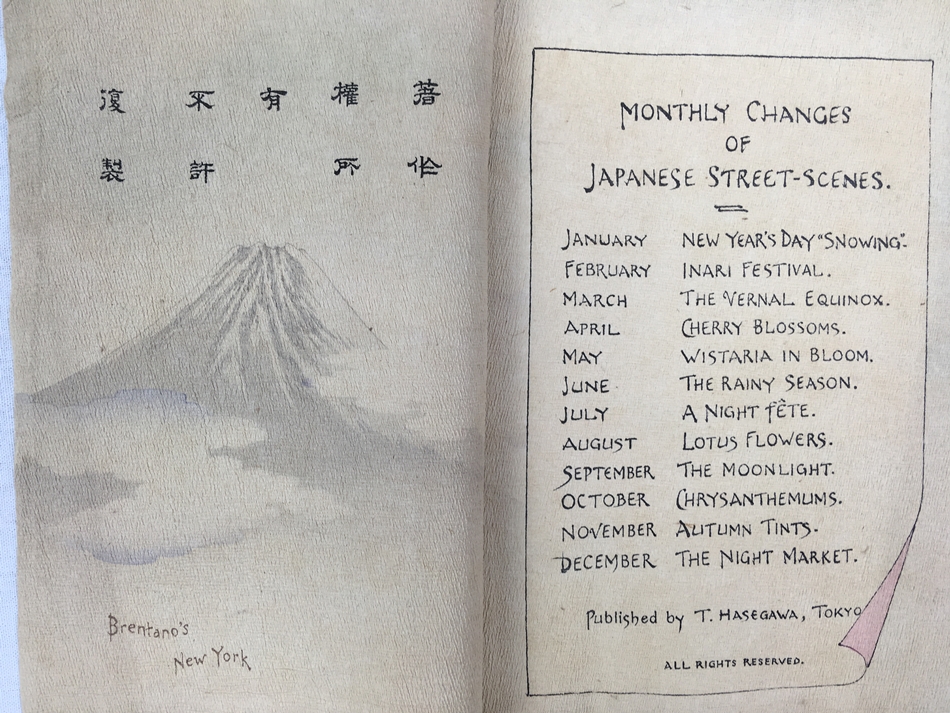 著作
權所
有
不許
復製
Brentano's
New York
MONTHLY CHANGES
OF
JAPANESE STREET-SCENES.
JANUARY NEW YEAR'S DAY "SNOWING".
FEBRUARY INARI FESTIVAL.
MARCH THE VERNAL EQUINOX.
APRIL CHERRY BLOSSOMS.
MAY WISTARIA IN BLOOM.
JUNE THE RAINY SEASON.
JULY A NIGHT FÊTE.
AUGUST LOTUS FLOWERS.
SEPTEMBER THE MOONLIGHT.
OCTOBER CHRYSANTHEMUMS.
NOVEMBER AUTUMN TINTS.
DECEMBER THE NIGHT MARKET.
Published by T. HASEGAWA, TOKYO
ALL RIGHTS RESERVED.